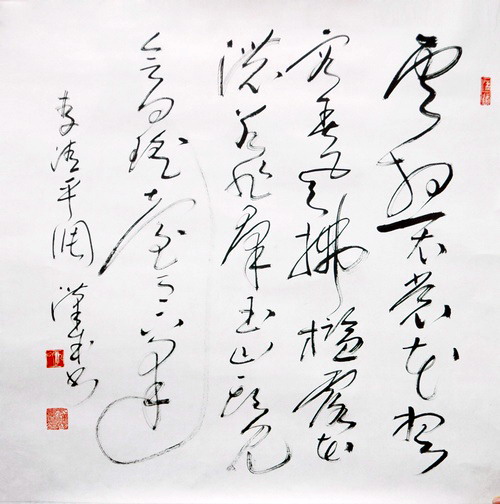 雲想衣裳花想
容春風拂檻露華
濃若非群玉山頭見
會向瑤臺月下逢
李清平調 漢成書